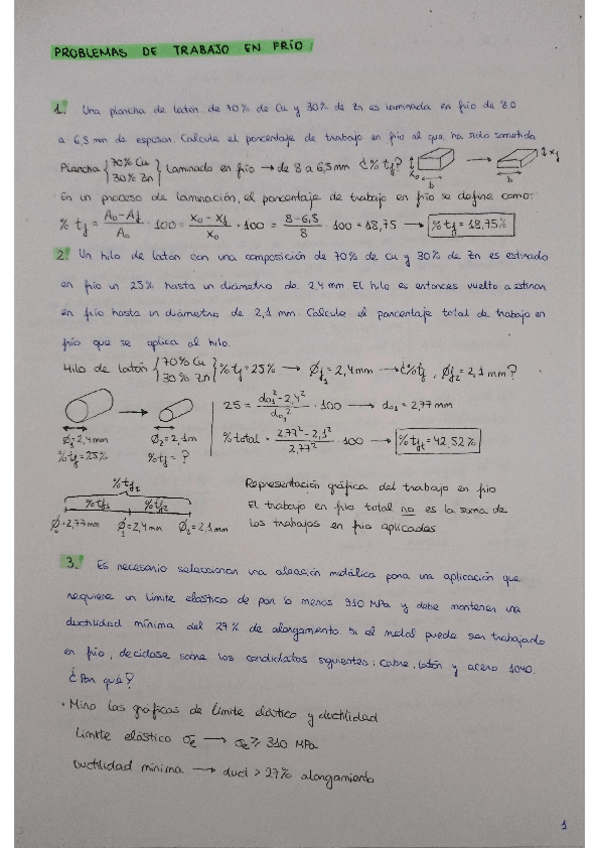 PROBLEMAS DE TRABAJO EN FRÍO
1. Una plancha de latón de 70% de Cu y 30% de Zn es laminada en frío de 8.0
a 6,5 mm de espesor. Calcule el porcentaje de trabajo en frío al que ha sido sometida
Plancha { 70% Cu 30% Zn } Laminado en frío → de 8 a 6,5mm ¿% tf? x₀ b → xf b
En un proceso de laminación, el porcentaje de trabajo en frío se define como:
% tf = (A₀-Af)/A₀ · 100 = (x₀-xf)/x₀ · 100 = (8-6,5)/8 · 100 = 18,75 → % tf = 18,75%
2. Un hilo de latón con una composición de 70% de Cu y 30% de Zn es estirado
en frío un 25% hasta un diámetro de 2,4 mm El hilo es entonces vuelto a estirar
en frío hasta un diámetro de 2,1 mm. Calcule el porcentaje total de trabajo en
frío que se aplica al hilo.
Hilo de latón { 70% Cu 30% Zn } % tf = 25% → Øf₁ = 2,4mm → ¿% tf, Øf₂ = 2,1 mm?
25 = (d₀₁² - 2,4²)/d₀₁² · 100 → d₀₁ = 2,77mm
Ø₁=2,4mm Ø₂=2,1m
% total · (2,77² - 2,1²)/2,77² · 100 → % tft = 42,52%
% tf = 25% % tf = ?
% tft
% tf₁ % tf₂
Ø₀=2,77 mm Ø₁=2,4mm Ø₂=2,1mm
Representación gráfica del trabajo en frío
El trabajo en frío total no es la suma de
los trabajos en frío aplicados
3. Es necesario seleccionar una aleación metálica para una aplicación que
requiere un límite elástico de por lo menos 310 MPa y debe mantener una
ductilidad mínima del 27% de alargamiento. Si el metal puede ser trabajado
en frío, decidase sobre los candidatos siguientes: Cobre, latón y acero 1040.
¿Por qué?
· Miro las gráficas de límite elástico y ductilidad
Límite elástico σe → σe ≥ 310 MPa
Ductilidad mínima → duct > 27% alargamiento
1